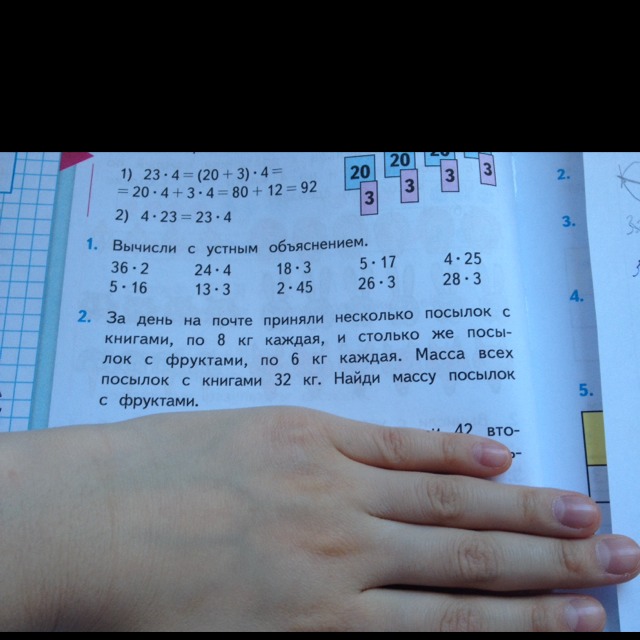 20 20 20
3 3 3 3
1) 23 · 4 = (20 + 3) · 4 =
= 20 · 4 + 3 · 4 = 80 + 12 = 92
2) 4 · 23 = 23 · 4
1. Вычисли с устным объяснением.
36 · 2 24 · 4 18 · 3 5 · 17 4 · 25
5 · 16 13 · 3 2 · 45 26 · 3 28 · 3
2. За день на почте приняли несколько посылок с
книгами, по 8 кг каждая, и столько же посы-
лок с фруктами, по 6 кг каждая. Масса всех
посылок с книгами 32 кг. Найди массу посылок
с фруктами.
42 вто-
2.
3.
4.
5.